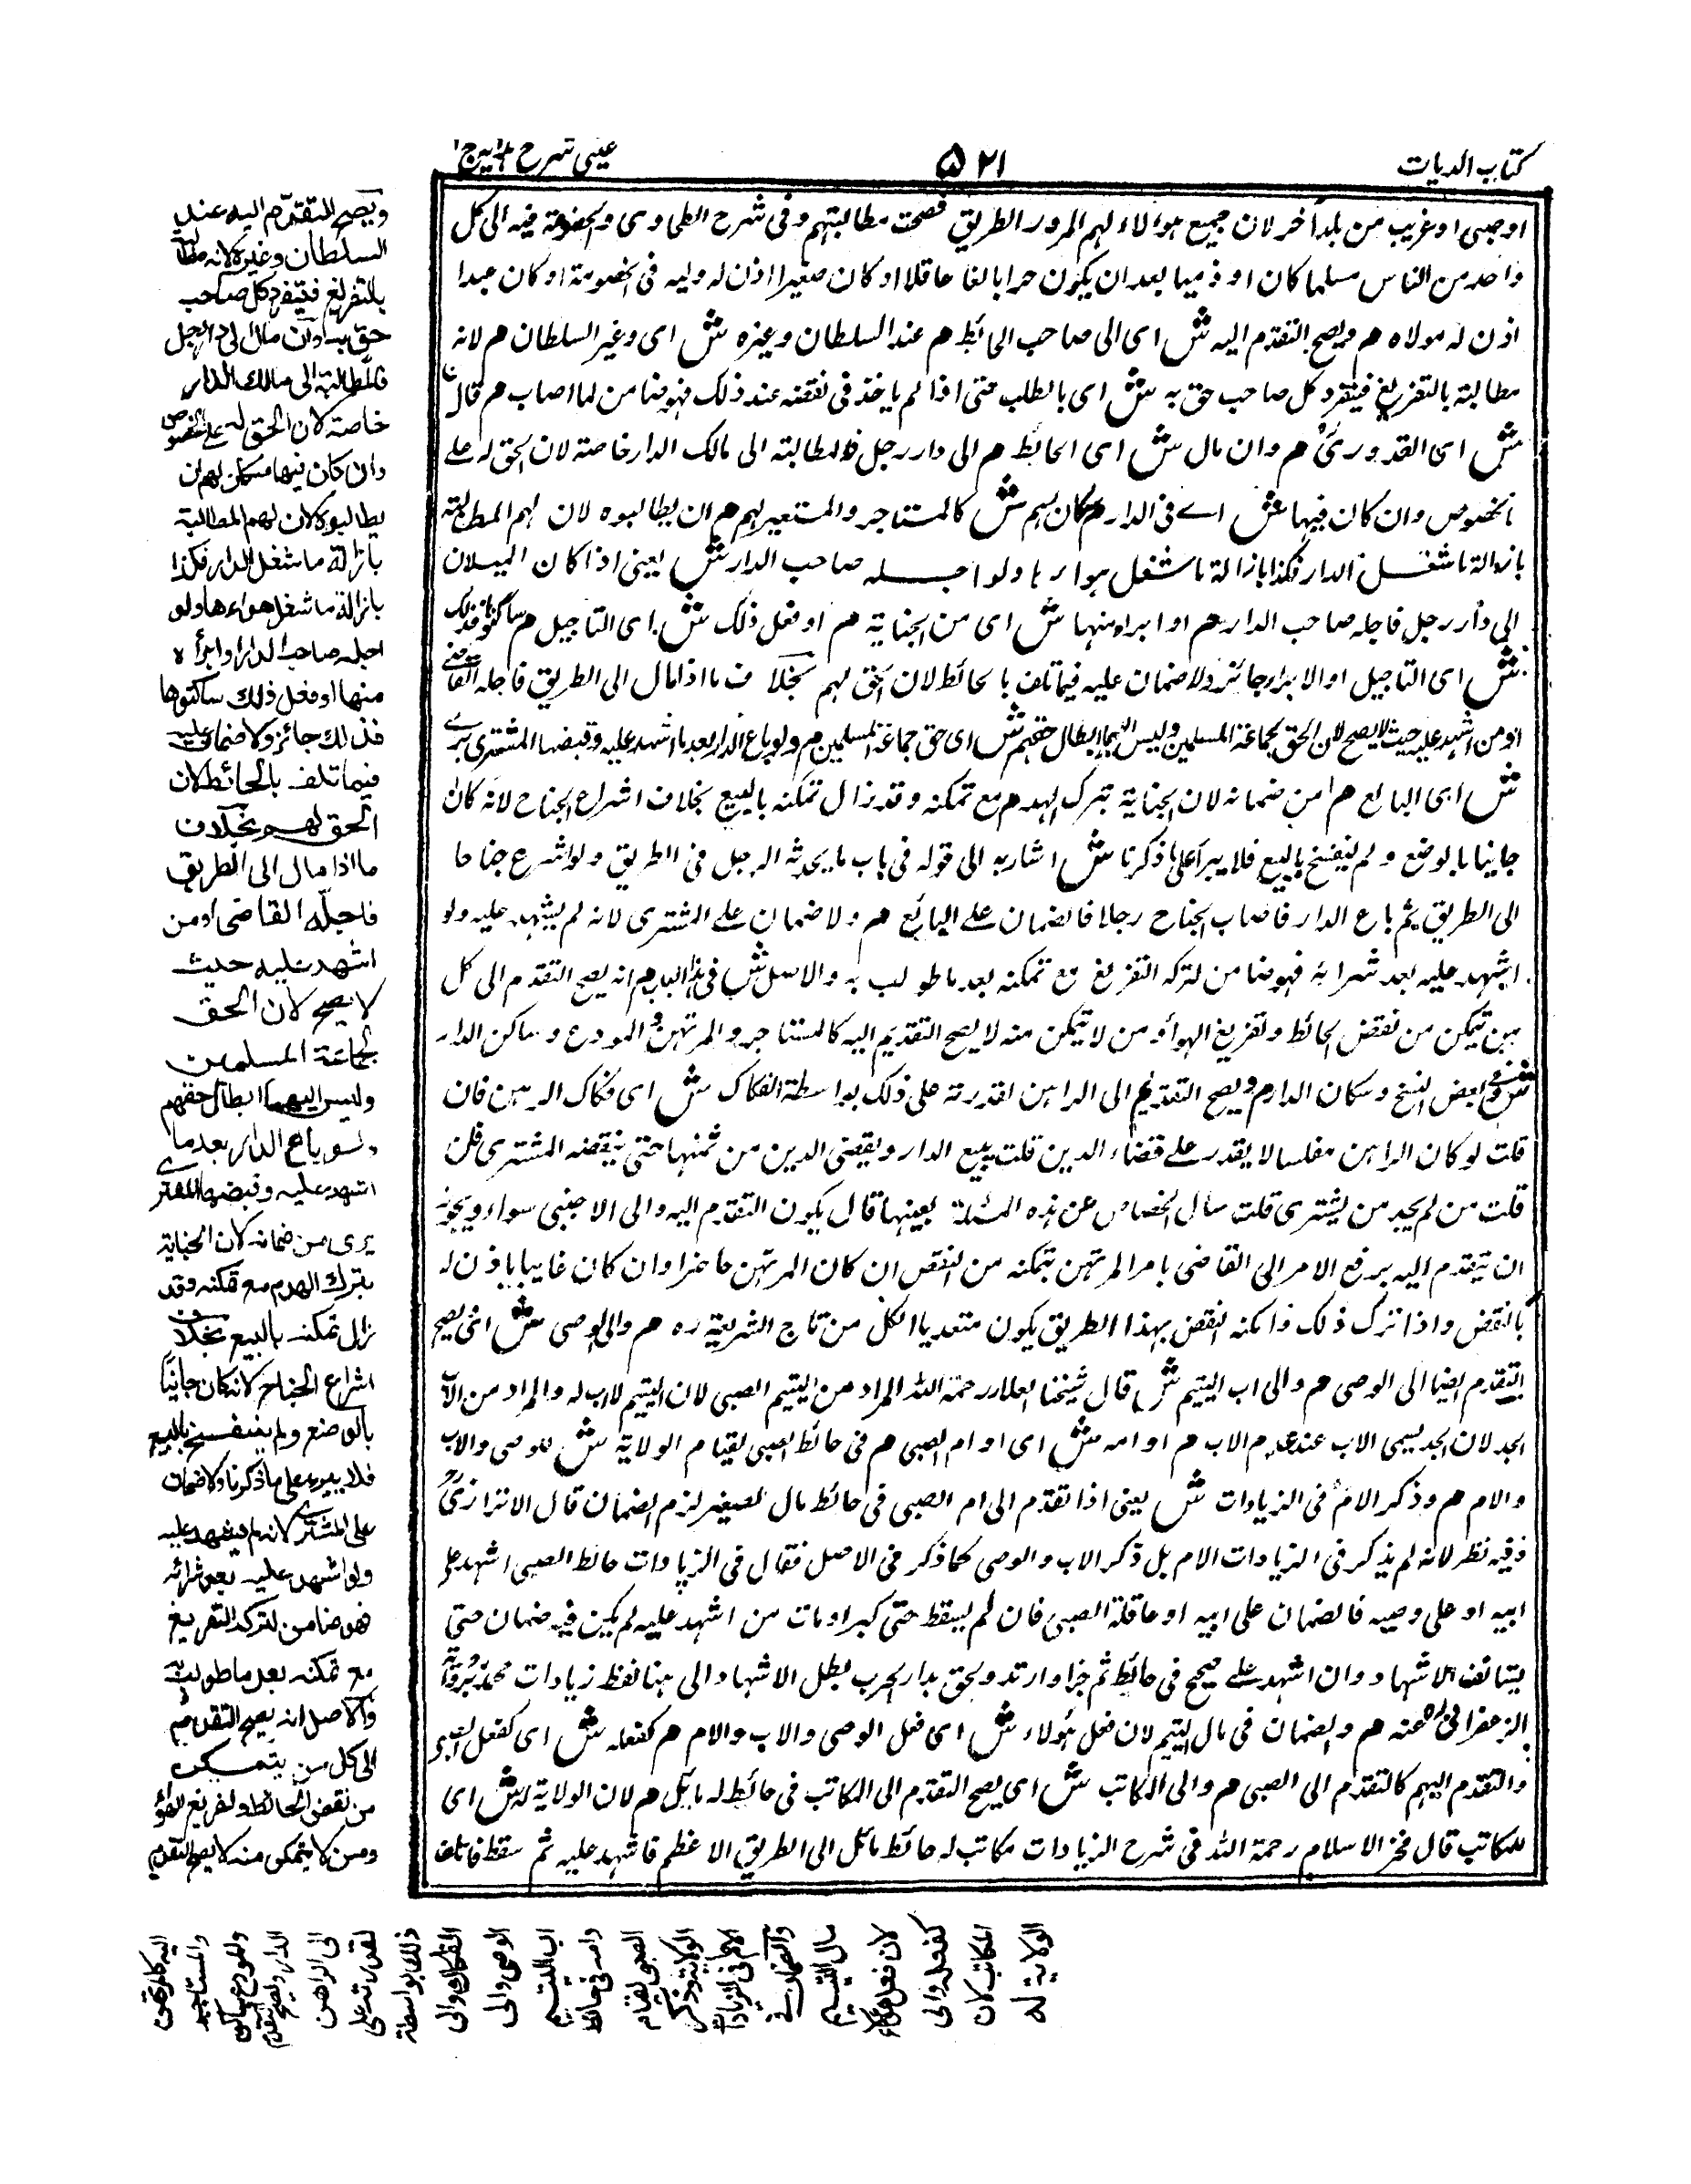 كتاب الديات
٥٢١
عينى شرح هداية ج
او صبى او غريب من بلد آخر لان جميع هؤلاء لهم المرور الطريق فصحت مطالبتهم وفى شرح الطحاوى والخصومة فيه الى كل
واحد من الناس مسلما كان او ذميا بعد ان يكون حرا بالغا عاقلا او كان صغيرا اذن له وليه فى الخصومة او كان عبدا
اذن له مولاه هم ويصح التقدم اليه ش اى الى صاحب الحائط هم عند السلطان وغيره ش اى وغير السلطان هم لانه
مطالبة بالتفريغ فيتفرد كل صاحب حق به ش اى بالطلب حتى اذا لم ياخذ فى نقضه عند ذلك فهو ضامن لما اصاب هم قال
ش اى القدورى هم وان مال ش اى الحائط هم الى دار رجل فالمطالبة الى مالك الدار خاصة لان الحق له على
الخصوص وان كان فيها ش اے فى الدار هم سكان لهم ش كالمستاجر والمستعير لهم هم ان يطالبوه لان لهم المطالبة
بازالة ما شغل الدار فكذا بازالة ما شغل هواءها ولو اجله صاحب الدار ش يعنى اذا كان الميلان
الى دار رجل فاجله صاحب الدار هم او ابراه منها ش اى من الجناية هم او فعل ذلك ش اى التاجيل هم ساكنوها فذلك
ش اى التاجيل او الابراء جائز ولا ضمان عليه فيما تلف بالحائط لان الحق لهم بخلاف ما اذا مال الى الطريق فاجله القاضى
او من اشهد عليه حيث لا يصح لان الحق لجماعة المسلمين وليس اليهما ابطال حقهم ش اى حق جماعة المسلمين هم ولو باع الدار بعد ما اشهد عليه وقبضها المشترى برئ
ش اى البائع هم من ضمانه لان الجناية بترك الهدم مع تمكنه وقد زال تمكنه بالبيع بخلاف اشراع الجناح لانه كان
جانيا بالوضع ولم ينفسخ بالبيع فلا يبرأ على ما ذكرنا ش اشار به الى قوله فى باب ما يحدثه الرجل فى الطريق ولو اشرع جناحا
الى الطريق ثم باع الدار فاصاب الجناح رجلا فالضمان على البائع هم ولا ضمان على المشترى لانه لم يشهد عليه ولو
اشهد عليه بعد شرائه فهو ضامن لتركه التفريغ مع تمكنه بعد ما طولب به والاصل ش فى هذا الباب هم انه يصح التقدم الى كل
من يتمكن من نقض الحائط وتفريغ الهواء ومن لا يتمكن منه لا يصح التقديم اليه كالمستاجر والمرتهن والمودع وساكن الدار
ش وفى بعض النسخ وسكان الدار هم ويصح التقديم الى الراهن لقدرته على ذلك بواسطة الفكاك ش اى فكاك الرهن فان
قلت لو كان الراهن مفلسا لا يقدر على قضاء الدين قلت يبيع الدار ويقضى الدين من ثمنها حتى ينقضه المشترى فان
قلت من لم يجد من يشترى قلت سال الخصاص عن هذه المسئلة بعينها قال يكون التقدم اليه والى الاجنبى سواء ويجوز
ان يتقدم اليه برفع الامر الى القاضى بامر المرتهن بتمكنه من النقض ان كان المرتهن حاضرا وان كان غايبا ياذن له
بالنقض واذا ترك ذلك وامكنه النقض بهذا الطريق يكون متعديا الكل من تاج الشريعة ره هم والى الوصى ش اى يصح
التقدم ايضا الى الوصى هم والى اب اليتيم ش قال شيخنا العلاء رحمة الله المراد من اليتيم الصبى لان اليتيم لا اب له والمراد من الاب
الجد لان الجد يسمى الاب عند عدم الاب هم او امه ش اى او ام الصبى هم فى حائط الصبى لقيام الولاية ش للوصى والاب
والام هم وذكر الام فى الزيادات ش يعنى اذا تقدم الى ام الصبى فى حائط مال الصغير لزم الضمان قال الاترازى
وفيه نظر لانه لم يذكر فى الزيادات الام بل ذكر الاب والوصى كما ذكر فى الاصل فقال فى الزيادات حائط الصبى اشهد على
ابيه او على وصيه فالضمان على ابيه او عاقلة الصبى فان لم يسقط حتى كبر او مات من اشهد عليه لم يكن فيه ضمان حتى
يستانف الاشهاد وان اشهد على صحيح فى حائط ثم جن او ارتد ولحق بدار الحرب بطل الاشهاد الى هنا لفظ زيادات محمد برواية
الزعفرانى عنه هم والضمان فى مال اليتيم لان فعل هؤلاء ش اى فعل الوصى والاب والام هم كفعله ش اى كفعل الصبى
والتقدم اليهم كالتقدم الى الصبى هم والى المكاتب ش اى يصح التقدم الى المكاتب فى حائط له مائل هم لان الولاية له ش اى
للمكاتب قال فخر الاسلام رحمة الله فى شرح الزيادات مكاتب له حائط مائل الى الطريق الاعظم فاشهد عليه ثم سقط فاتلف
ويصح التقدم اليه عند
السلطان وغيره لانه مطالبة
بالتفريغ فيتفرد كل صاحب
حق به وان مال الى دار رجل
فالمطالبة الى مالك الدار
خاصة لان الحق له على الخصوص
وان كان فيها سكان لهم ان
يطالبوه لان لهم المطالبة
بازالة ما شغل الدار فكذا
بازالة ما شغل هواءها ولو
اجله صاحب الدار او ابرأه
منها او فعل ذلك ساكنوها
فذلك جائز ولا ضمان عليه
فيما تلف بالحائط لان
الحق لهم بخلاف
ما اذا مال الى الطريق
فاجله القاضى او من
اشهد عليه حيث
لا يصح لان الحق
لجماعة المسلمين
وليس اليهما ابطال حقهم
ولو باع الدار بعد ما
اشهد عليه وقبضها المشترى
برى من ضمانه لان الجناية
بترك الهدم مع تمكنه وقد
زال تمكنه بالبيع بخلاف
اشراع الجناح لانه كان جانيا
بالوضع ولم ينفسخ بالبيع
فلا يبرء على ما ذكرنا ولا ضمان
على المشترى لانه لم يشهد عليه
ولو اشهد عليه بعد شرائه
فهو ضامن لتركه التفريغ
مع تمكنه بعد ما طولب به
والاصل انه يصح التقديم
الى كل من يتمكن
من نقض الحائط وتفريغ الهواء
ومن لا يتمكن منه لا يصح التقديم
اليه كالمرتهن
والمستاجر
والمودع وساكن
الدار ويصح التقدم
الى الراهن
لقدرته على
ذلك بواسطة
الفكاك والى
الوصى والى
اب اليتيم
وامه فى حائط
الصبى لقيام
الولاية وذكر
الام فى الزيادات
والضمان فى
مال اليتيم
لان فعل هؤلاء
كفعله والى
المكاتب لان
الولاية له